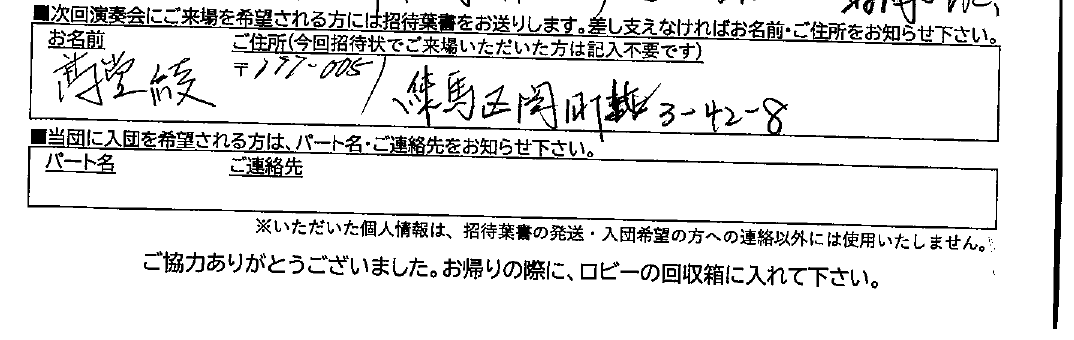 ■次回演奏会にご来場を希望される方には招待葉書をお送りします。差し支えなければお名前・ご住所をお知らせ下さい。
お名前 ご住所(今回招待状でご来場いただいた方は記入不要です)
堂綾 〒177-0051
練馬区関町 3-42-8
■当団に入団を希望される方は、パート名・ご連絡先をお知らせ下さい。
パート名 ご連絡先
※いただいた個人情報は、招待葉書の発送・入団希望の方への連絡以外には使用いたしません。
ご協力ありがとうございました。お帰りの際に、ロビーの回収箱に入れて下さい。